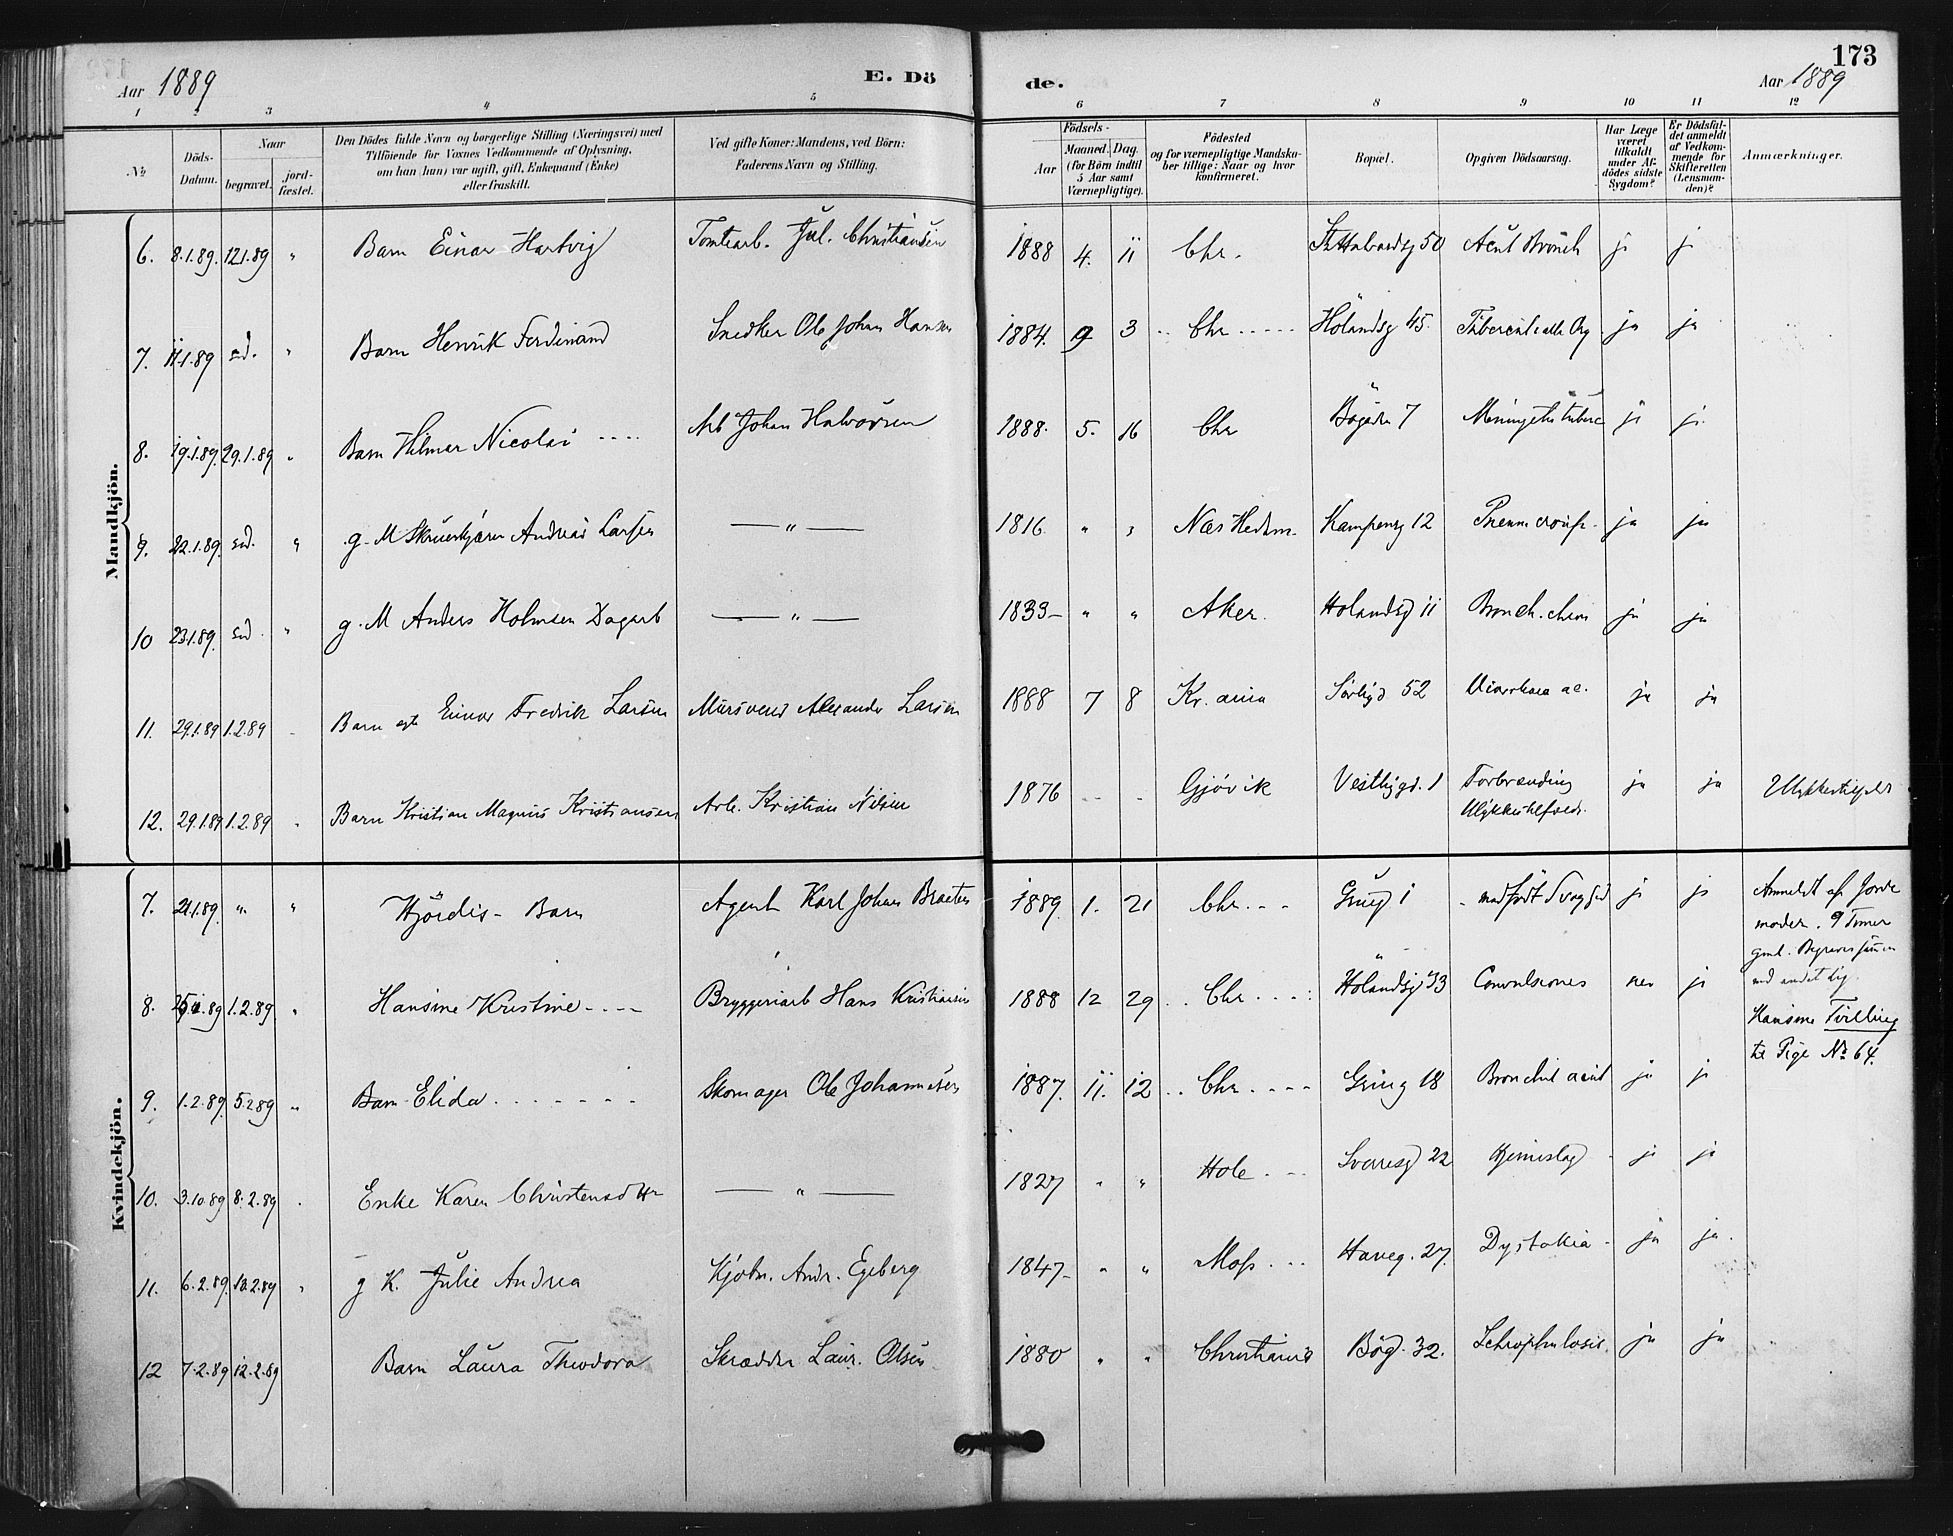 173
Aar 1889 E. Dö de. Aar 1889
1 2 3 4 5 6 7 8 9 10 11 12
№ Döds-Datum. Naar begravet. jord-fæstet. Den Dödes fulde Navn og borgerlige Stilling (Næringsvei) med Tilföiende for Voxnes Vedkommende af Oplysning, om han (hun) var ugift, gift, Enkemand (Enke) eller fraskilt. Ved gifte Koner: Mandens, ved Börn: Faderens Navn og Stilling. Födsels- Aar Maaned. Dag. (for Börn indtil 5 Aar samt Værnepligtige). Födested og for værnepligtige Mandskaber tillige: Naar og hvor konfirmeret. Bopæl. Opgiven Dödsaarsag. Har Læge været tilkaldt under Afdödes sidste Sygdom? Er Dödsfaldet anmeldt af Vedkommende for Skifteretten (Lensmanden)? Anmærkninger.
Mandkjön.
6. 8.1.89. 12.1.89 " Barn Einar Hartvig Tomtearb. Jul. Christiansen 1888 4. 11 Chr. St Halvardsg 50 Acut Bronch ja ja
7. 11.1.89 sd. " Barn Henrik Ferdinand Snedker Ole Johan Hansen 1884. 9 3 Chr Hölandsg 45. ja ja
8. 19.1.89. 29.1.89 " Barn Hilmar Nicolai Arb Johan Halvorsen 1888. 5. 16 Chr Bögaden 7 ja ja
9. 22.1.89. sd. " g. M Andreas Larsen — " — 1816 " " Næs Hedm. Kampeng 12 ja ja
10 23.1.89. sd. " g. M Anders Holmsen Dagarb — " — 1833 " " Aker. Holandsg 11 Bronch. chron ja ja
11. 29.1.89 1.2.89 Barn Einar Fredrik Larsen Mursvend Alexander Larsen 1888 7 8 Kr.ania Sörligd 52 Diarrhoea ac. ja ja
12. 29.1.89 1.2.89 Barn Kristian Magnus Kristiansen Arb. Kristian Nilsen 1876 Gjøvik Vestbygd. 1 Forbrænding ja ja
Kvindekjön.
7. 21.1.89. " " Hjördis - Barn Agent Karl Johan Braaten 1889. 1. 21 Chr. Grüng 1 medfödt Svaghed ja ja Anmeldt af Jorde
moder. 9 Timer
gml.
med andet Lig.
8. 1.2.89. " Hansine Kristine Bryggeriarb Hans Kristiansen 1888 12 29 Chr Hölandsg 33 Convulsiones nei ja Hansine Tvilling
til Pige № 64.
9. 1.2.89. 5.2.89 " Barn Elida Skomager Ole Johannesen 1887. 11. 12 Chr. Grüng 18 Bronchit acut ja ja
10. 3.10.89 8.2.89 Enke Karen Christensdttr — " — 1827 " " Hole Sverresg 22 ja ja
11. 6.2.89. 10.2.89 " g K. Julie Andrea Kjøbm. Andr. Egeberg 1847 " " Moss Haveg. 27. Dystokia ja ja.
12 7.2.89 12.2.89 Barn Laura Theodora Skrædder Laur. Olsen 1880 " " Christiania Bög. 32. Schrophulosis. ja ja